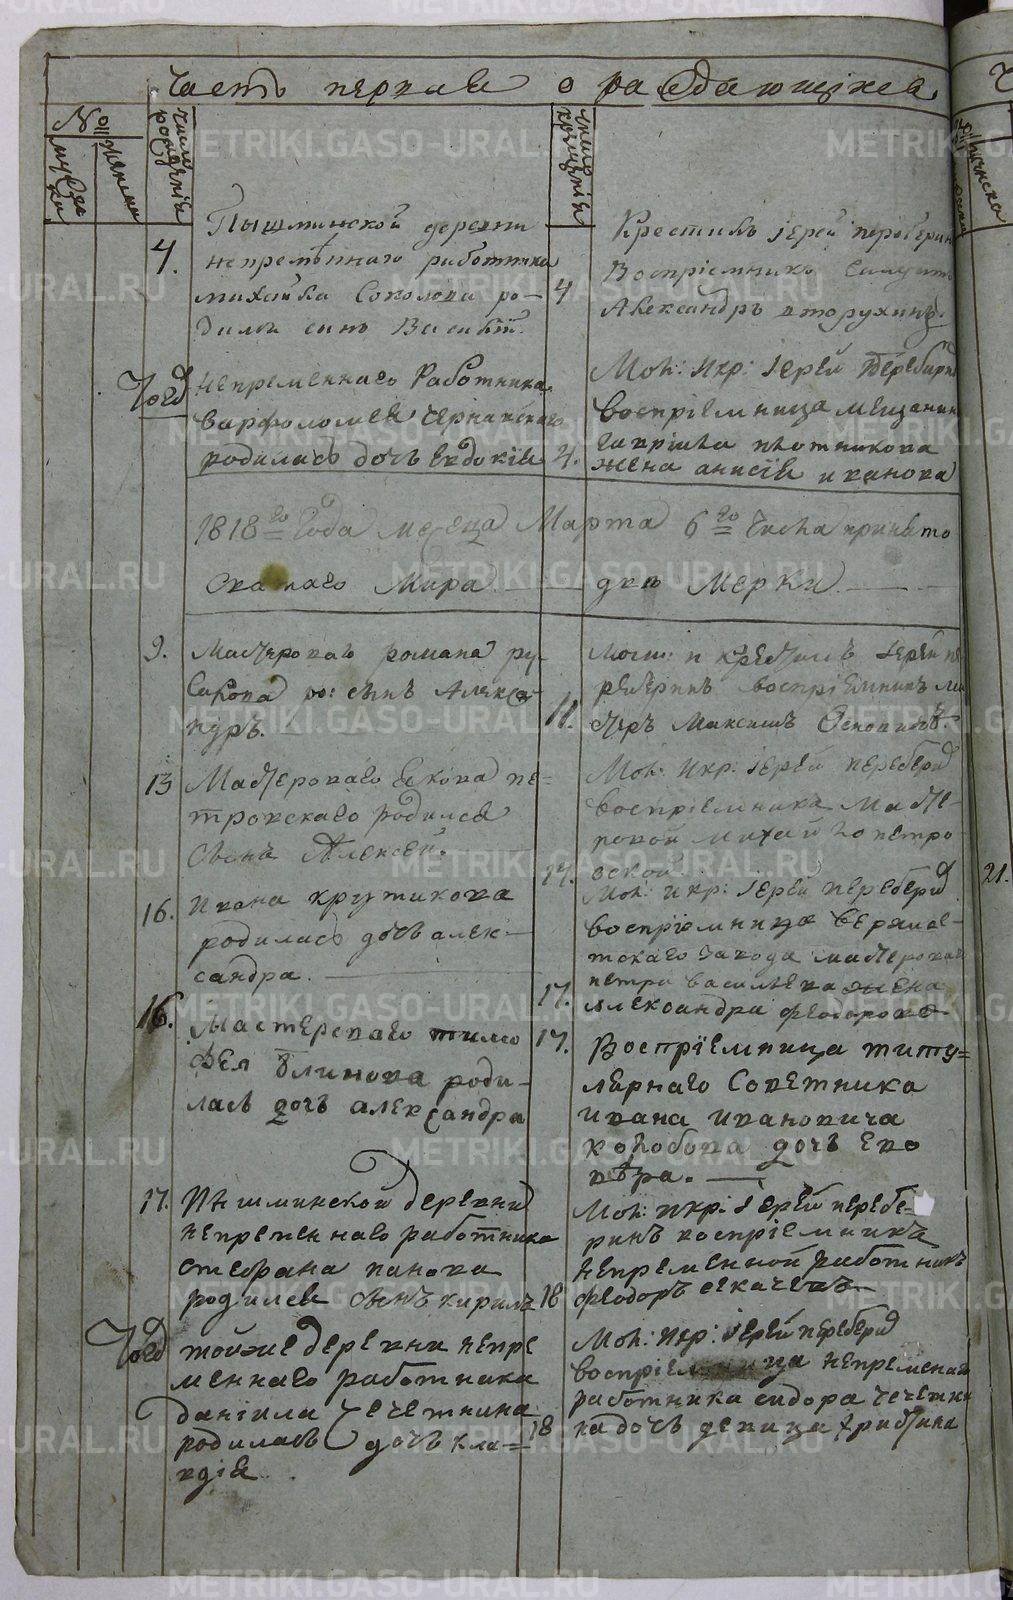 часть первая о раждающихся
№
числа рождения
числа крещения
мужеска
женска
4.
Пышминской деревни
непремѣннаго работника
михайла Соколова ро-
дился сынъ Василiй.
4
Крестилъ iерей переберин
Воспрiемникъ
Александръ вторухинъ.
Тогд
непременнаго Работника
варфоломея чернавскаго
родилась дочь евдокiя
4.
Мол: икр: iерей Перебирин
воспрiемница мещанин
гаврiила плотникова
жена анисiя иванова
1818го Года месеца Марта 6го числа принято
святаго Мира для Мерки
9.
Мастероваго романа ру-
сакова ро: сынъ Алекса-
ндръ.
11.
молит: и крестилъ Iерей пе
реберинъ воспрiемникъ ма
стеръ Максимъ Осиповъ.
13
Мастероваго якова пе-
тровскаго родился
сынъ Алексей.
14.
Мол: икр: iерей переберин
воспрiемникъ Масте-
ровой михайло петро-
вской
16.
Ивана крутикова
родилась дочь алек-
сандра.
17.
Мол: икр: iерей переберин
воспрiемница верхис-
тскаго завода мастероваго
петра васильева жена
александра феодорова
16.
Мастероваго тимо
фея блинова роди-
лась дочь александра
17.
Воспрiемница титу=
лярнаго Советника
ивана ивановича
коробова дочь
17.
Пышминской деревни
непременнаго работника
стефана панова
родился сынъ кирилъ
18
Мол: икр: iерей перебе-
ринъ воспрiемникъ
непременной работникъ
феодоръ секачевъ
Тогд
тойже деревни непре
меннаго работника
данiила чечеткина
родилась дочь кла=
вдiя
18
Мол: икр: iерей переберин
воспрiемница непременаго
работника сидора чечетки
на дочь девица христина
21.
METRIKI.GASO-URAL.RU